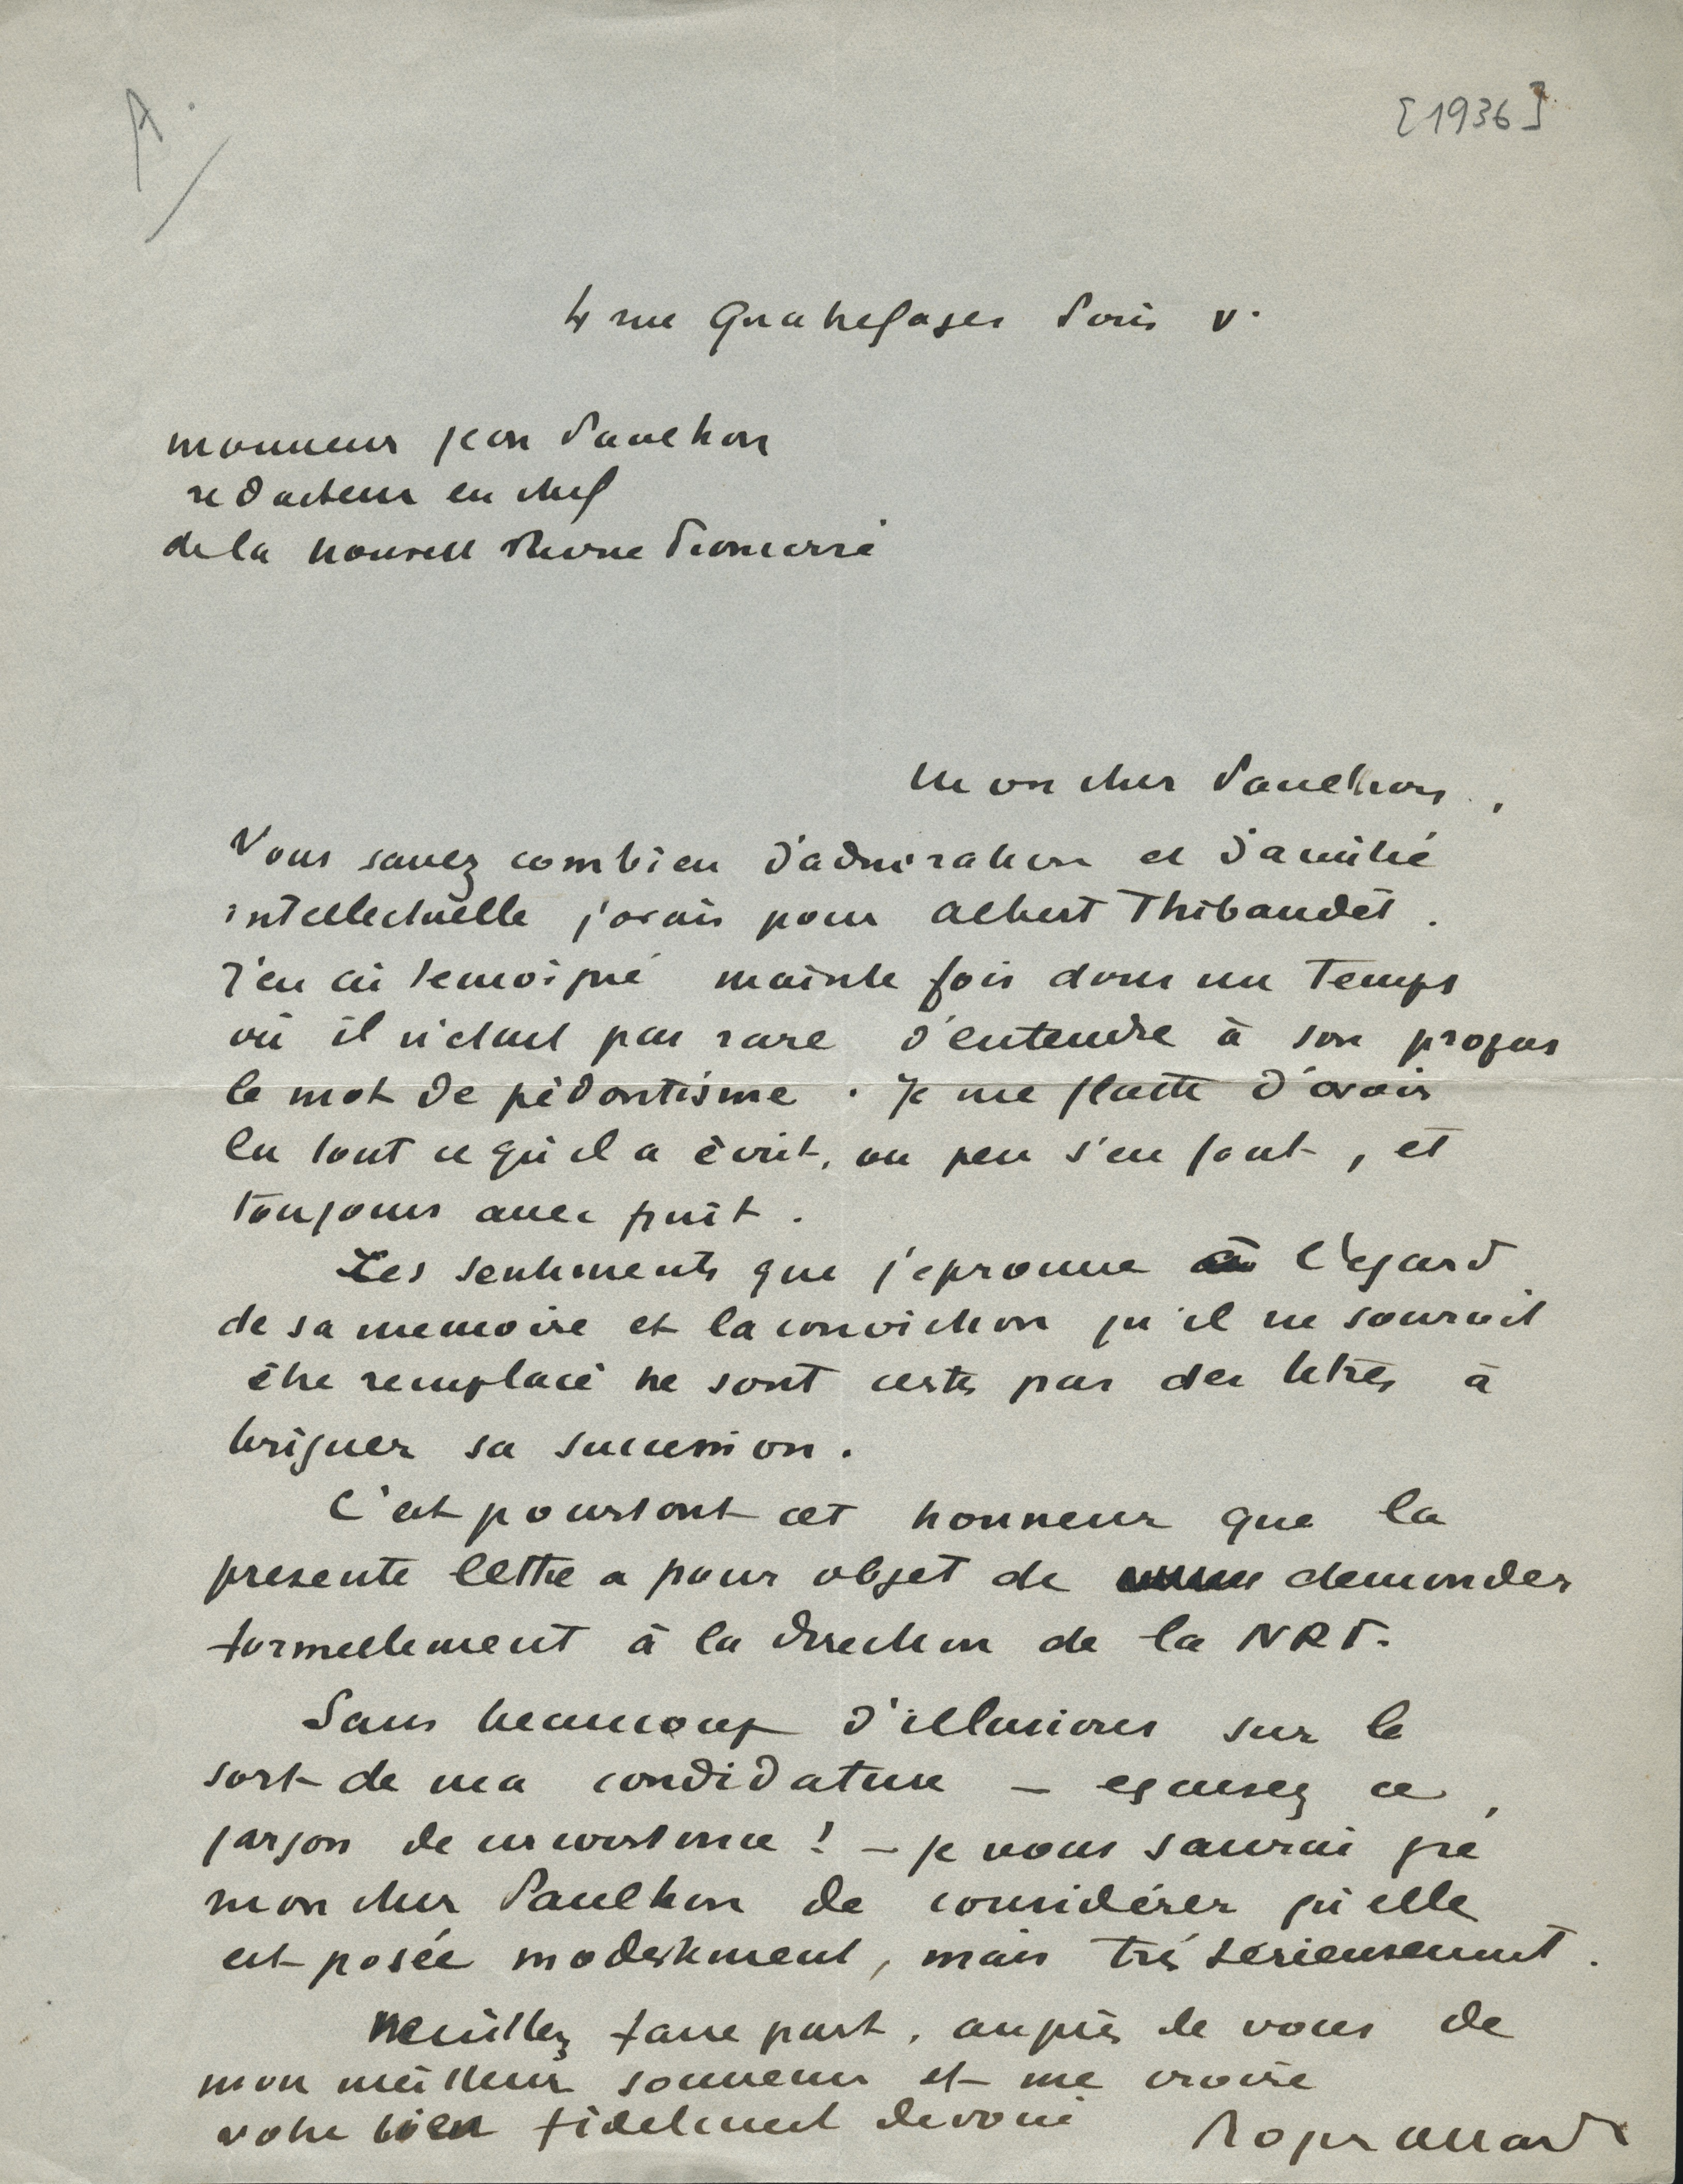 A.
[1936]
4 rue Quatrefages Paris V.
monsieur jean Paulhan
redacteur en chef
de la nouvelle Revue Francaise
mon cher Paulhan,
Vous savez combien d'admiration et d'amitié
intellectuelle j'avais pour Albert Thibaudet.
J'en ai temoigné mainte fois dans un temps
où il n'etait pas rare d'entendre à son propos
le mot de pédantisme. Je me flatte d'avoir
lu tout ce qu'il a écrit, ou peu s'en faut, et
toujours avec fruit.
Les sentiments que j'eprouve à l'egard
de sa memoire et la conviction qu'il ne saurait
être remplacé ne sont certes pas des titres à
briguer sa succession.
C'est pourtant cet honneur que la
presente lettre a pour objet de demander
formellement à la direction de la NRF.
Sans beaucoup d'illusions sur le
sort de ma candidature — excusez ce
jargon de circonstance ! — je vous saurai gré
mon cher Paulhan de considérer qu'elle
est posée modestement, mais très sérieusement.
Veuillez faire part, auprès de vous de
mon meilleur souvenir et me croire
votre bien fidelement devoué
Roger Allard